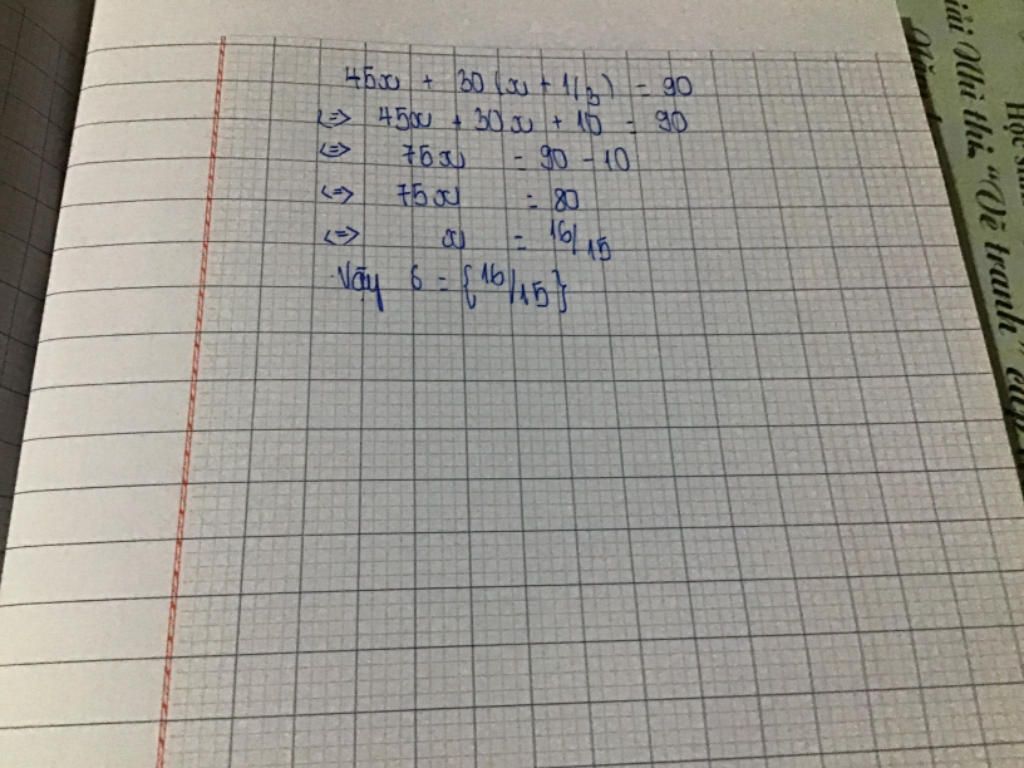 45x + 30(x + 1/3) = 90
<=> 45x + 30x + 10 = 90
<=> 75x = 90 - 10
<=> 75x = 80
<=> x = 16/15
Vậy S = {16/15}
giải Nhì thi "Vẽ tranh